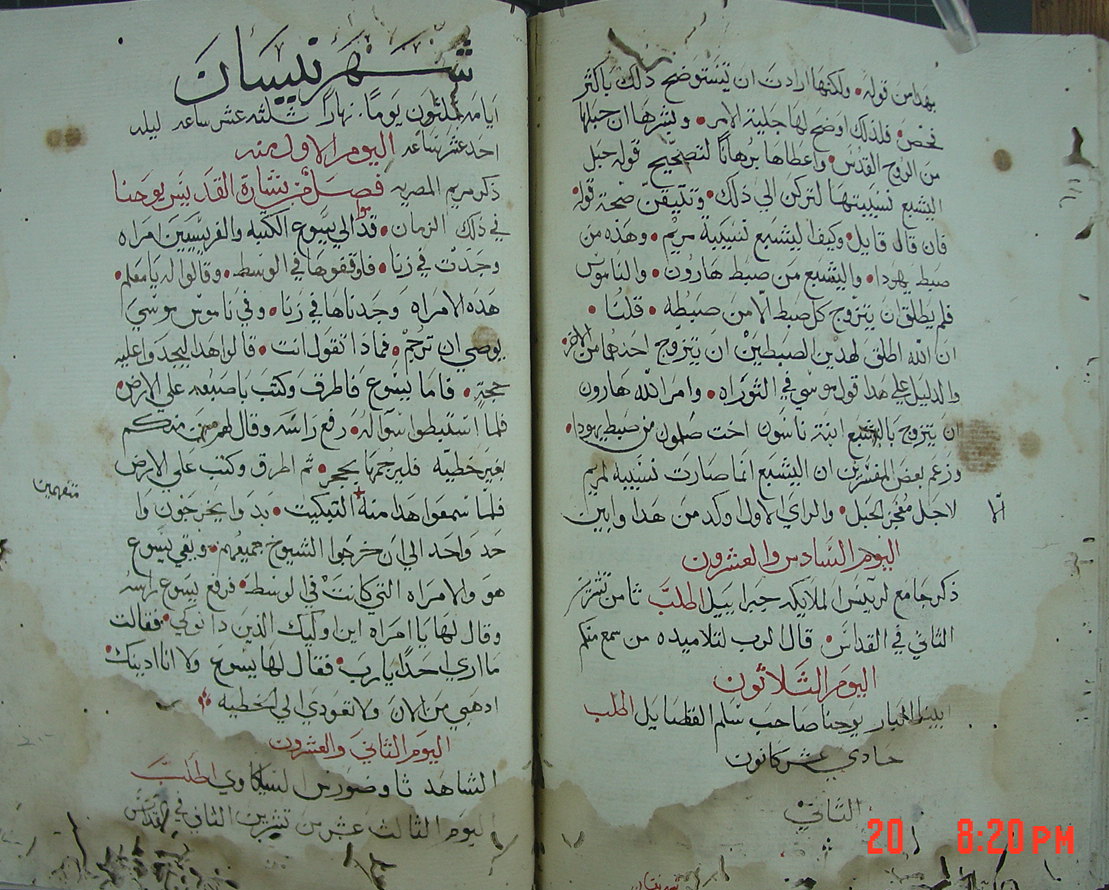 بهذا من قوله، ولكنها ارادت ان تستوضح ذلك باكثر
فحص، فلذلك اوضح لها جلية الامر، وبشرها ان حبلها
من الروح القدس، واعطاها برهانًا لتصحيح قوله حبل
اليشبع نسيبتها لتركن الي ذلك، وتتيقن صحة قوله
فان قال قايل، وكيف اليشبع نسيبة مريم، وهذه من
صبط يهودا، واليشبع من صبط هارون، والناموس
فلم يطلق ان يتزوج كل صبط الّا من صبطه، قلنا،
ان الله اطلق لهدين الصبطين ان يتزوج احدهما من الاخر
والدليل علي هدا قول موسي في التوراه، وامر الله هارون
ان يتزوج باليشبع ابنة ناسون اخت صلمون من صبط يهودا،
وزعم بعض المفسرين ان اليشبع انما صارت نسيبه لمريم
لاجل معجز الحبل، والراي الاول اوكد من هدا وابين
الّا
اليوم السادس والعشرون
ذكر جامع لريس الملايكه جبراييل اطلب ثامن تشرين
الثاني في القداس، قال الرب لتلاميده من سمع منكم
اليوم الثلاثون
ابينا البار يوحنا صاحب سلم الفضايل اطلب
حادي عشر كانون
الثاني
شهر نيسان
ايامه ثلثون يومًا، نهارًا ثلثة عشر ساعه ليله
احد عشر ساعه اليوم الاول منه
ذكر مريم المصريه فصل من بشارة القديس يوحنا
في ذلك الزمان، قدموا الي يسوع الكتبه والفريسيين امراه
وجدت في زنا، فاوقفوها في الوسط، وقالوا له يا معلم،
هذه الامراه وجدناها في زنا، وفي ناموس موسي
يوصي ان ترجم، فماذا تقول انت، قالوا هدا ليجدوا عليه
حجة، فاما يسوع فاطرق وكتب باصبعه علي الارض
فلما استبطوا سواله، رفع راسه وقال لهم من منكم
بغير خطيه فليرجمها بحجر، ثم اطرق وكتب علي الارض
متفهمين
فلما سمعوا هدا منه التبكيت، بدوا يخرجون وا
حد واحد الي ان خرجوا الشيوخ جميعهم، وبقي يسوع
هو والامراه التي كانت في الوسط، فرفع يسوع راسه
وقال لها يا امراه اين اوليك الذين دانوكي، فقالت
ما اري احدًا يا رب، فقال لها يسوع ولا انا ادينك،
ادهبي من الان ولا تعودي الي الخطيه
اليوم الثاني والعشرون
الشاهد ثاوضورس السيكاوي اطلب
اليوم الثالث عشر من تشرين الثاني في القداس
20 8:20 PM